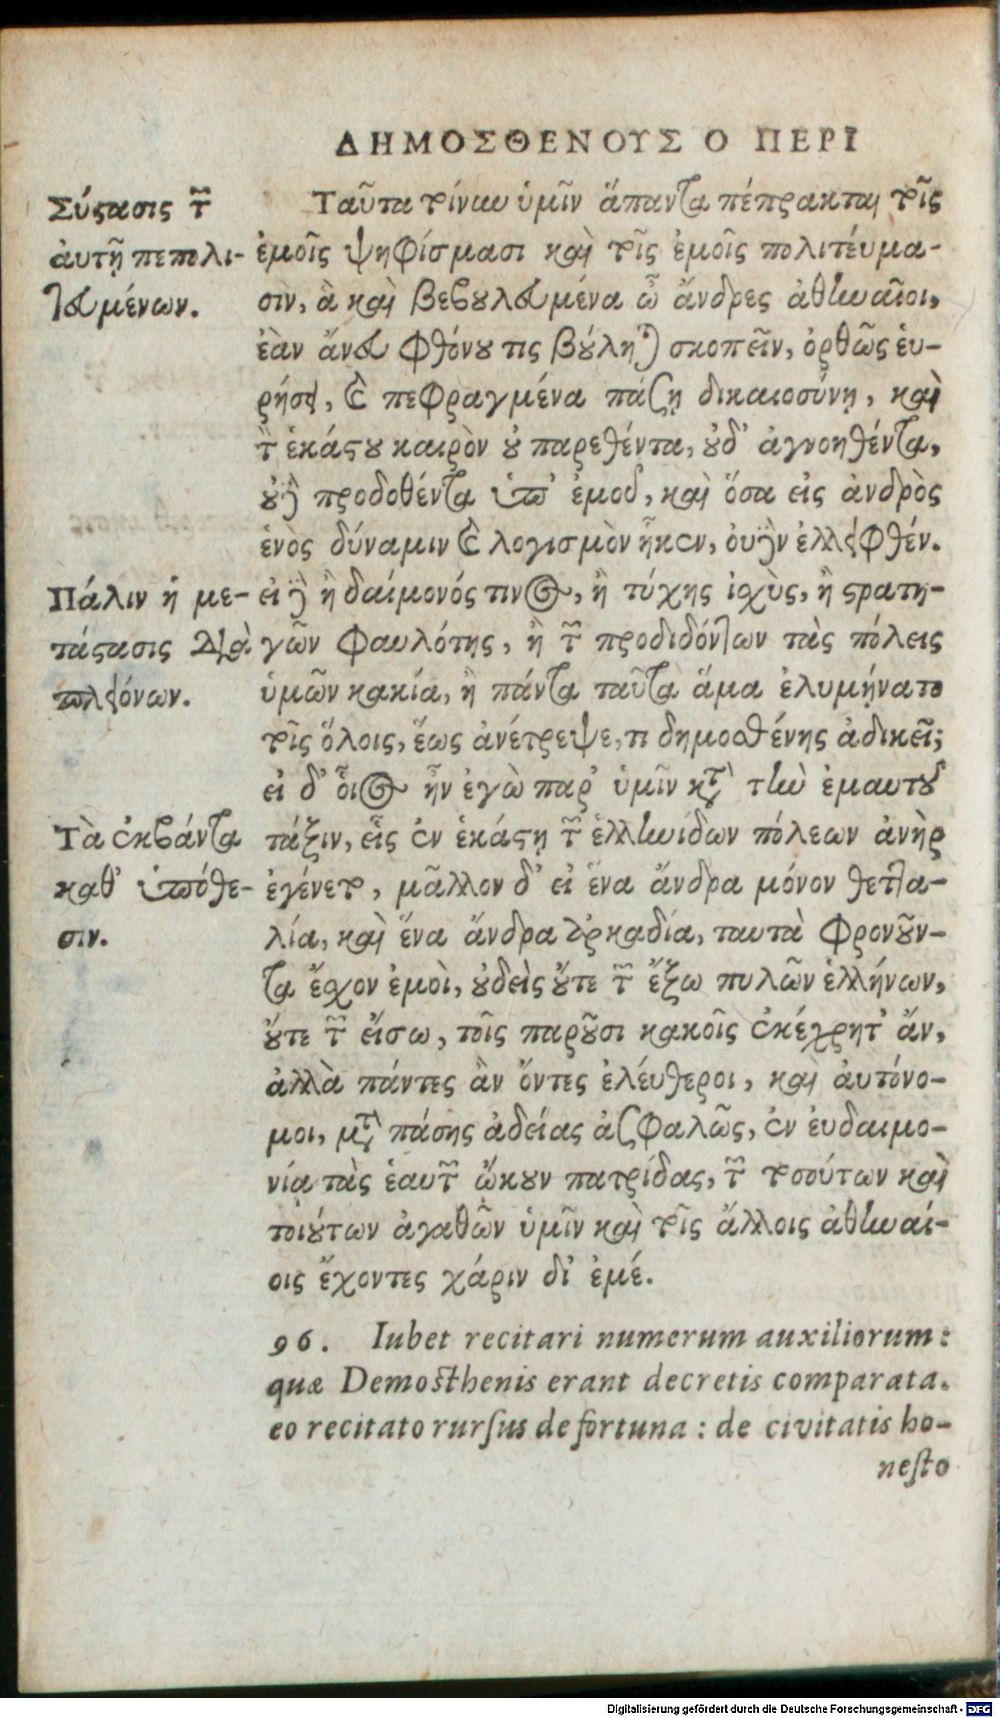 ΔΗΜΟΣΘΕΝΟΥΣ Ο ΠΕΡΙ
Σύστασις τῶν
αὐτῇ πεπολι-
τευμένων.
Ταῦτα τοίνυν ὑμῖν ἅπαντα πέπρακται τοῖς
ἐμοῖς ψηφίσμασι καὶ τοῖς ἐμοῖς πολιτεύμα-
σιν, ἃ καὶ βεβουλευμένα ὦ ἄνδρες ἀθηναῖοι,
ἐὰν ἄνευ φθόνου τις βούληται σκοπεῖν, ὀρθῶς εὑ-
ρήσει, καὶ πεπραγμένα πάσῃ δικαιοσύνῃ, καὶ
τὸν ἑκάστου καιρὸν οὐ παρεθέντα, οὐδ' ἀγνοηθέντα,
οὐδὲ προδοθέντα ὑπ' ἐμοῦ, καὶ ὅσα εἰς ἀνδρὸς
ἑνὸς δύναμιν καὶ λογισμὸν ἧκεν, οὐδὲν ἐλλειφθέν.
Πάλιν ἡ με-
τάστασις διὰ
πλειόνων.
εἰ δὲ ἢ δαίμονός τινος, ἢ τύχης ἰσχὺς, ἢ στρατη-
γῶν φαυλότης, ἢ τῶν προδιδόντων τὰς πόλεις
ὑμῶν κακία, ἢ πάντα ταῦτα ἅμα ἐλυμήνατο
τοῖς ὅλοις, ἕως ἀνέτρεψε, τι δημοσθένης ἀδικεῖ;
εἰ δ' οἷος ἦν ἐγὼ παρ' ὑμῖν κατὰ τὴν ἐμαυτοῦ
Τὰ ἐκβάντα
καθ' ὑπόθε-
σιν.
τάξιν, εἷς ἐν ἑκάστῃ τῶν ἑλληνίδων πόλεων ἀνὴρ
ἐγένετο, μᾶλλον δ' εἰ ἕνα ἄνδρα μόνον θεττα-
λία, καὶ ἕνα ἄνδρα ἀρκαδία, ταυτὰ φρονοῦν-
τα ἔσχον ἐμοὶ, οὐδεὶς οὔτε τῶν ἔξω πυλῶν ἑλλήνων,
οὔτε τῶν εἴσω, τοῖς παροῦσι κακοῖς ἐκέχρητ' ἄν,
ἀλλὰ πάντες ἂν ὄντες ἐλεύθεροι, καὶ αὐτόνο-
μοι, μετὰ πάσης ἀδείας ἀσφαλῶς, ἐν εὐδαιμο-
νίᾳ τὰς ἑαυτῶν ᾤκουν πατρίδας, τῶν τοσούτων καὶ
τοιούτων ἀγαθῶν ὑμῖν καὶ τοῖς ἄλλοις ἀθηναί-
οις ἔχοντες χάριν δι' ἐμέ.
96. Iubet recitari numerum auxiliorum:
quæ Demosthenis erant decretis comparata.
eo recitato rursus de fortuna: de civitatis ho-
nesto
Digitalisierung gefördert durch die Deutsche Forschungsgemeinschaft - DFG